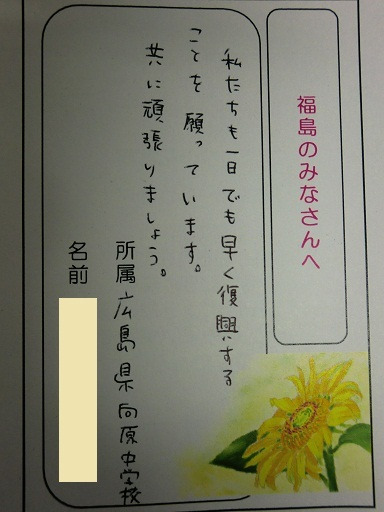 福島のみなさんへ
私たちも一日でも早く復興する
ことを願っています。
共に頑張りましょう。
所属 広島県向原中学校
名前